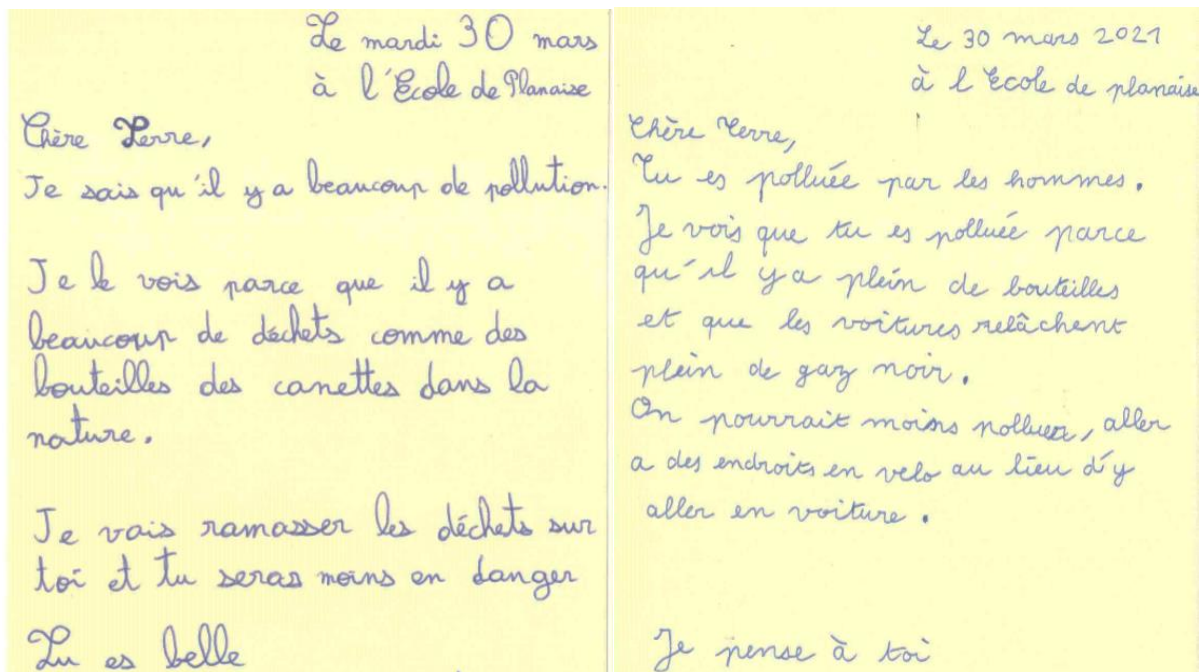 Le mardi 30 mars
à l'École de Planaise
Chère Terre,
Je sais qu'il y a beaucoup de pollution.
Je le vois parce que il y a
beaucoup de déchets comme des
bouteilles des canettes dans la
nature.
Je vais ramasser les déchets sur
toi et tu seras moins en danger
Tu es belle
Le 30 mars 2021
à l'Ecole de planaise
Chère Terre,
Tu es polluée par les hommes.
Je vois que tu es polluée parce
qu'il y a plein de bouteilles
et que les voitures relâchent
plein de gaz noir.
On pourrait moins polluer, aller
a des endroits en velo au lieu d'y
aller en voiture.
Je pense à toi